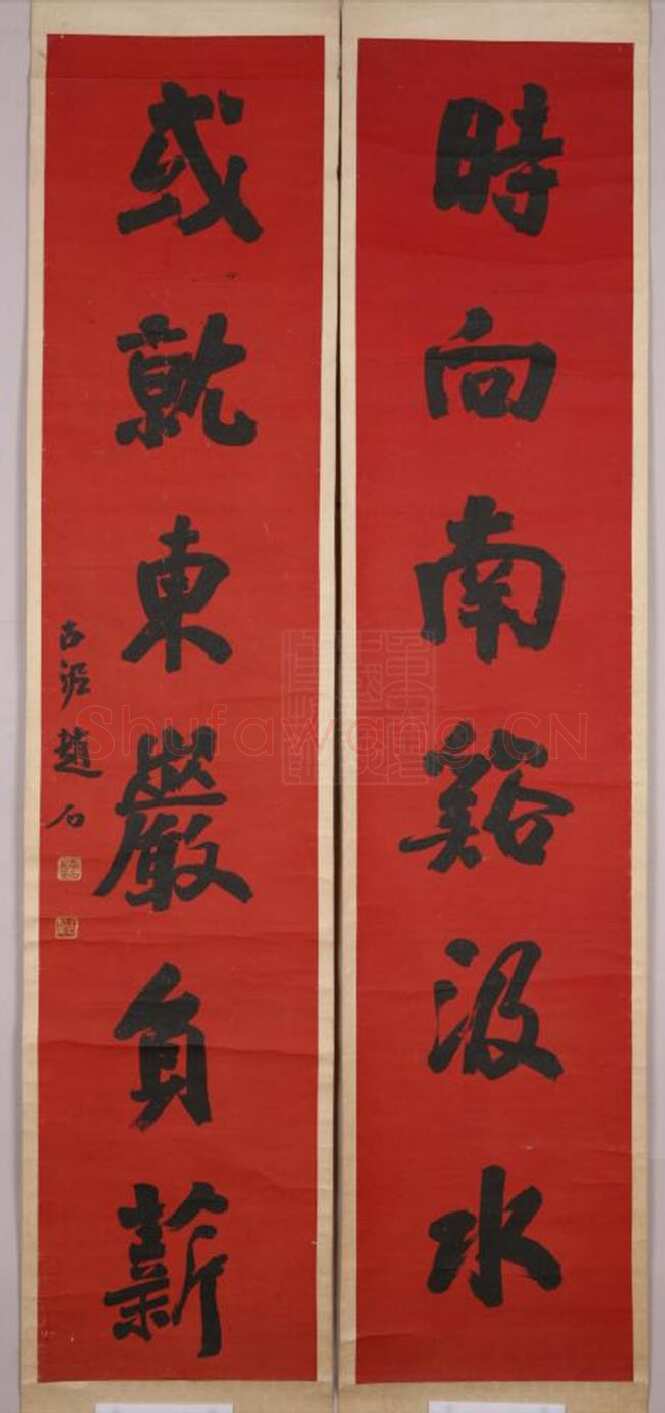 時向南谿汲水
或就東巖負薪
古泥趙石
Shufawang.CN